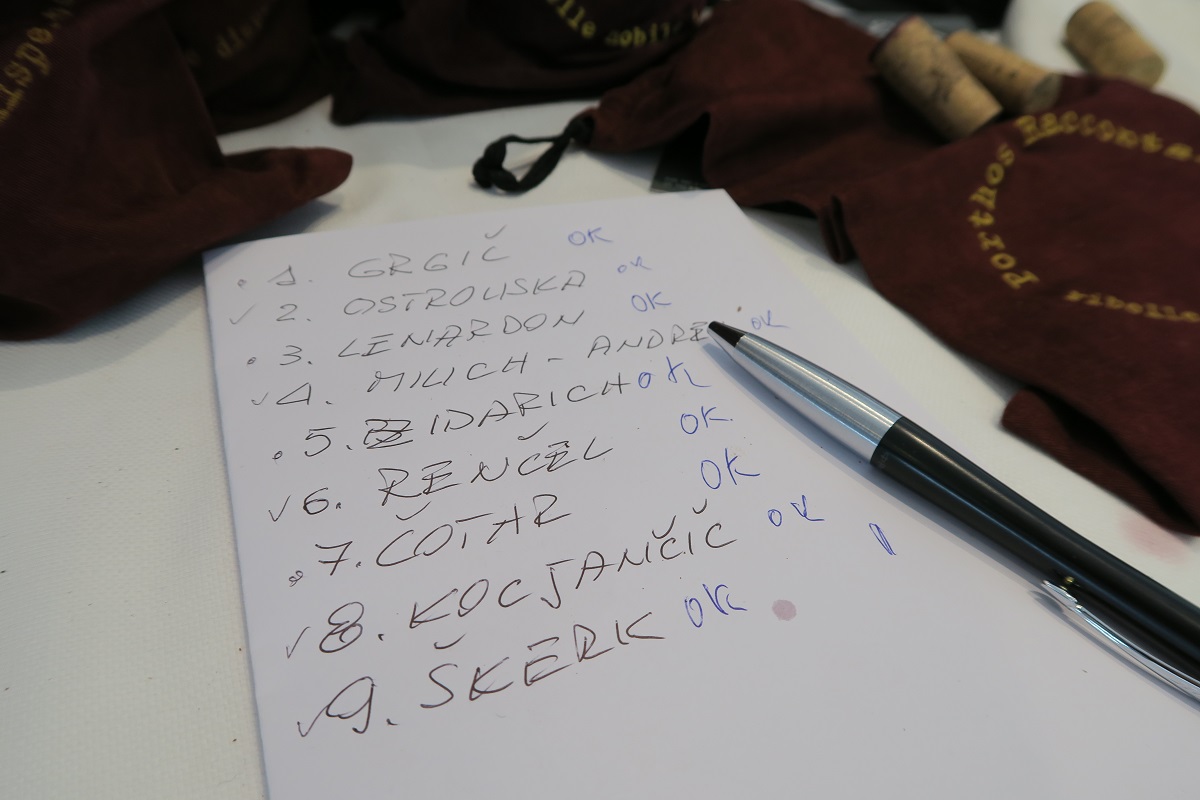 Porthos Racconta
• 1. GRGIČ OK
✓ 2. OSTROUSKA OK
• 3. LENARDON OK
✓ 4. MILICH - ANDRE OK
• 5. ZIDARICH OK
✓ 6. RENČEL OK.
• 7. ČOTAR OK
✓ 8. KOCJANČIČ OK
✓ 9. ŠKERK OK